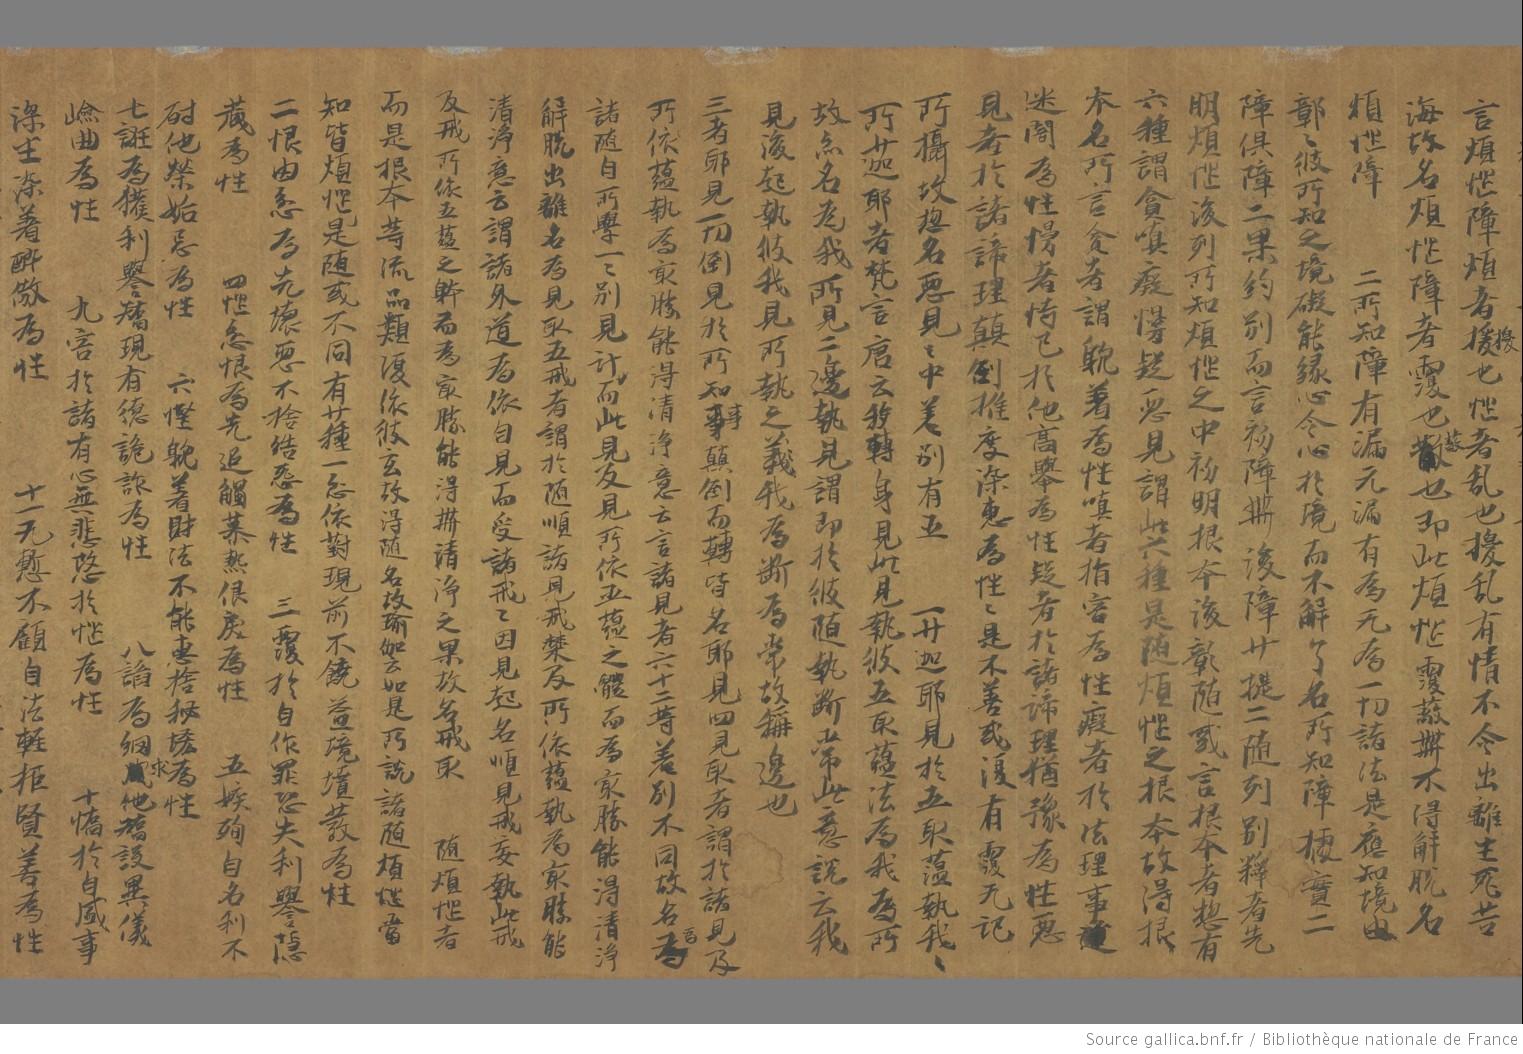 言煩惱障煩者擾也惱者乱也擾乱有情不令出離生死苦
海故名煩惱障者覆也蔽也即此煩惱覆蔽㸦不得解脫名
煩惱障 二所知障有漏无漏有為无為一切諸法是應知境由
彰〻彼所知之境礙能緣心令心於境而不解了名所知障梗實二
障俱障二果約別而言初障㸦後障廿提二随列別釋者先
明煩惱後列所知煩惱之中初明根本後彰随惑言根本者惣有
六種謂貪嗔癡慢疑惡見謂此六種是随煩惱之根本故得根
本名所言貪者謂躭著為性嗔者損害為性癡者於法理事
迷闇為性慢者恃己於他高舉為性疑者於諸諦理猶豫為性惡
見者於諸諦理顛倒推度染惠為性〻是不善或復有覆无記
所攝故惣名惡見〻中差別有五 一廿迦耶見於五取蕴執我〻
所廿迦耶者梵言唐云移轉身見此見執彼五取蕴法為我為所
故亦名為我所見二邊執見謂即於彼随執断常此意説云我
見後起執彼我見所執之義我為断為常故稱邊也
三者耶見一切倒見於所知事顛倒而轉皆名耶見四見取者謂於諸見及
所依蕴執為㝡勝能得清淨意云言諸見者六十二等差別不同故名為
諸随自所學一〻別見計而此見及見所依五蕴之體而為㝡勝能得清淨
解脫出離名為見取五戒者謂於随順諸見戒禁及所依蕴執為㝡勝能
清淨意云謂諸外道為依自見而受諸戒〻因見起名順見戒妄執此戒
及戒所依五蕴之躰而為㝡勝能得㸦清淨之果故名戒取 随煩惱者
而是根本等流品類復依彼立故得随名故瑜伽云如是所説諸随煩惱當
知皆煩惱是随或不同有廿種一忿依對現前不饒益境憤發為性
二恨由忿為先懷惡不捨結怨為性 三覆於自作罪恐失利譽隱
藏為性 四惱忿恨為先追觸暴熱佷戾為性 五嫉殉自名利不
耐他榮妬忌為性 六慳躭著財法不能惠捨秘悋為性
七誑為獲利譽矯現有德詭詐為性 八諂為網他矯設異儀
嶮曲為性 九害於諸有心無悲愍於惱為性 十憍於自盛事
深生染著醉慠為性 十一无慙不顧自法軽拒賢善為性